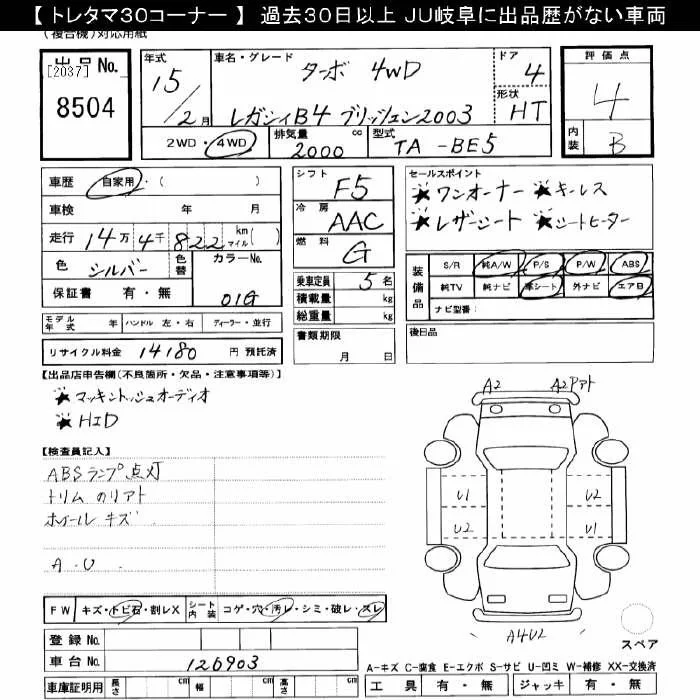 【 トレタマ30コーナー 】 過去30日以上 JU岐阜に出品歴がない車両
(複合機)対応用紙
出品No.
[2037]
8504
年式 15/2月
車名・グレード ターボ 4WD
レガシィB4 ブリッツェン2003
ドア 4
形状 HT
評価点 4
内装 B
2WD・4WD 排気量 2000 cc 型式 TA-BE5
車歴 自家用・( )
車検 年 月
走行 14万4千822 km マイル( )
色 シルバー 色替 カラーNo. 01G
保証書 有・無
シフト F5
冷房 AAC
燃料 G
乗車定員 5名
積載量 kg
総重量 kg
書類期限 月 日
セールスポイント
★ワンオーナー ★キーレス
★レザーシート ★シートヒーター
装備品 S/R 純A/W P/S P/W ABS
純TV 純ナビ 革シート 外ナビ エアB
ナビ型番:
後日品
モデル年式 年 ハンドル 左・右 ディーラー・並行
リサイクル料金 14180 円 預託済
【出品店申告欄(不良箇所・欠品・注意事項等)】
★マッキントッシュオーディオ
★HID
【検査員記入】
ABSランプ点灯
トリム のリアト
ホイール キズ
A.U
A2 A2 Pアト
U1 U2
U2 U1
A4U2
スペア
FW キズ・トビ石・割レX シート内装 コゲ・穴・汚レ・シミ・破レ・スレ
登録No.
車台No. 126903
車庫証明用 長さ cm 幅 cm 高さ cm
A-キズ C-腐食 E-エクボ S-サビ U-凹ミ W-補修 XX-交換済
工具 有・無 ジャッキ 有・無